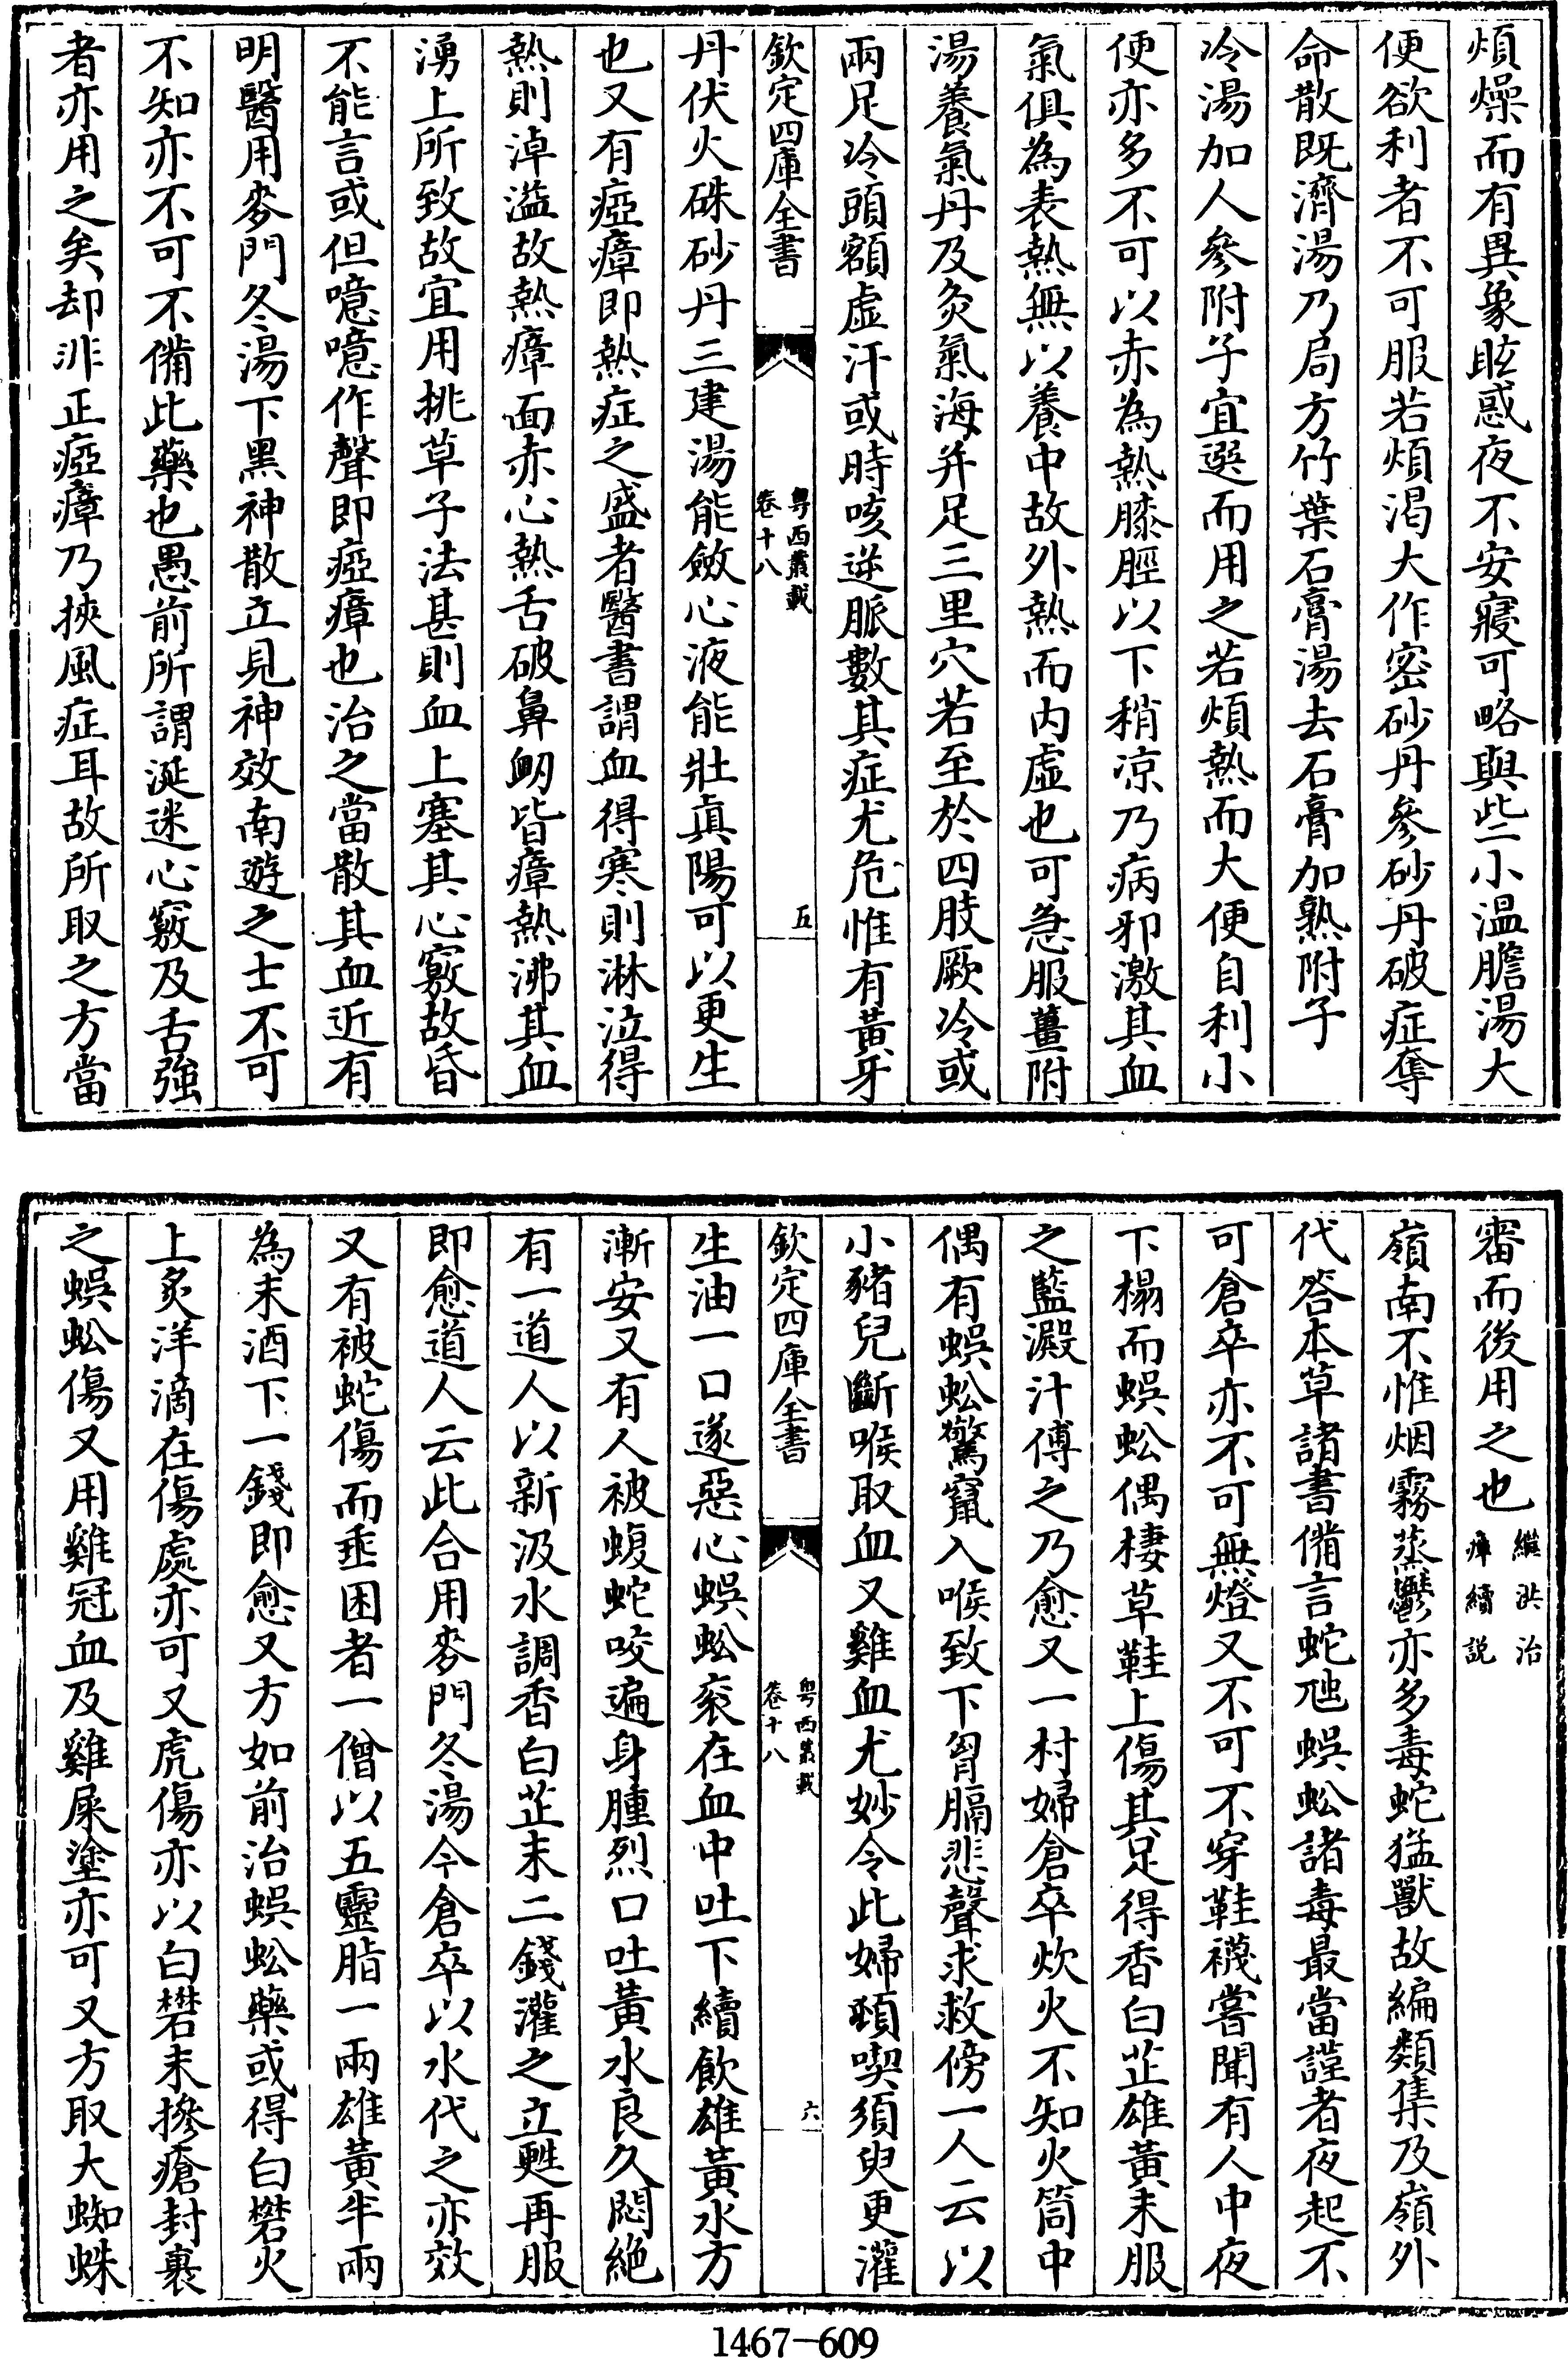 煩燥而有異象眩惑夜不安寢可略與些小温膽湯大
便欲利者不可服若煩渴大作密砂丹參砂丹破症奪
命散既濟湯乃局方竹葉石膏湯去石膏加熟附子
冷湯加人參附子宜選而用之若煩熱而大便自利小
便亦多不可以赤為熱膝脛以下稍凉乃病邪激其血
氣俱為表熱無以養中故外熱而内虚也可急服薑附
湯養氣丹及灸氣海并足三里穴若至於四肢厥冷或
兩足冷頭額虚汗或時咳逆脈數其症尤危惟有黃牙
欽定四庫全書
粤西叢載
卷十八
五
丹伏火硃砂丹三建湯能斂心液能壯真陽可以更生
也又有瘂瘴即熱症之盛者醫書謂血得寒則淋泣得
熱則淖溢故熱瘴面赤心熱舌破鼻衂皆瘴熱沸其血
湧上所致故宜用挑草子法甚則血上塞其心竅故昏
不能言或但噫噫作聲即瘂瘴也治之當散其血近有
明醫用麥門冬湯下黑神散立見神效南遊之士不可
不知亦不可不備此藥也愚前所謂涎迷心竅及舌強
者亦用之矣却非正瘂瘴乃挾風症耳故所取之方當
審而後用之也
繼洪治
瘴續説
嶺南不惟烟霧蒸鬱亦多毒蛇猛獸故編類集及嶺外
代答本草諸書備言蛇虺蜈蚣諸毒最當謹者夜起不
可倉卒亦不可無燈又不可不穿鞋襪嘗聞有人中夜
下榻而蜈蚣偶棲草鞋上傷其足得香白芷雄黃末服
之藍澱汁傅之乃愈又一村婦倉卒炊火不知火筒中
偶有蜈蚣驚竄入喉致下胷膈悲聲求救傍一人云以
小豬兒斷喉取血又雞血尤妙令此婦頓喫須臾更灌
欽定四庫全書
粤西叢載
卷十八
六
生油一口遂惡心蜈蚣衮在血中吐下續飲雄黃水方
漸安又有人被蝮蛇咬遍身腫烈口吐黃水良久悶絶
有一道人以新汲水調香白芷末二錢灌之立甦再服
即愈道人云此合用麥門冬湯今倉卒以水代之亦效
又有被蛇傷而垂困者一僧以五靈脂一兩雄黃半兩
為末酒下一錢即愈又方如前治蜈蚣藥或得白礬火
上炙洋滴在傷處亦可又虎傷亦以白礬末摻瘡封裹
之蜈蚣傷又用雞冠血及雞屎塗亦可又方取大蜘蛛
1467-609